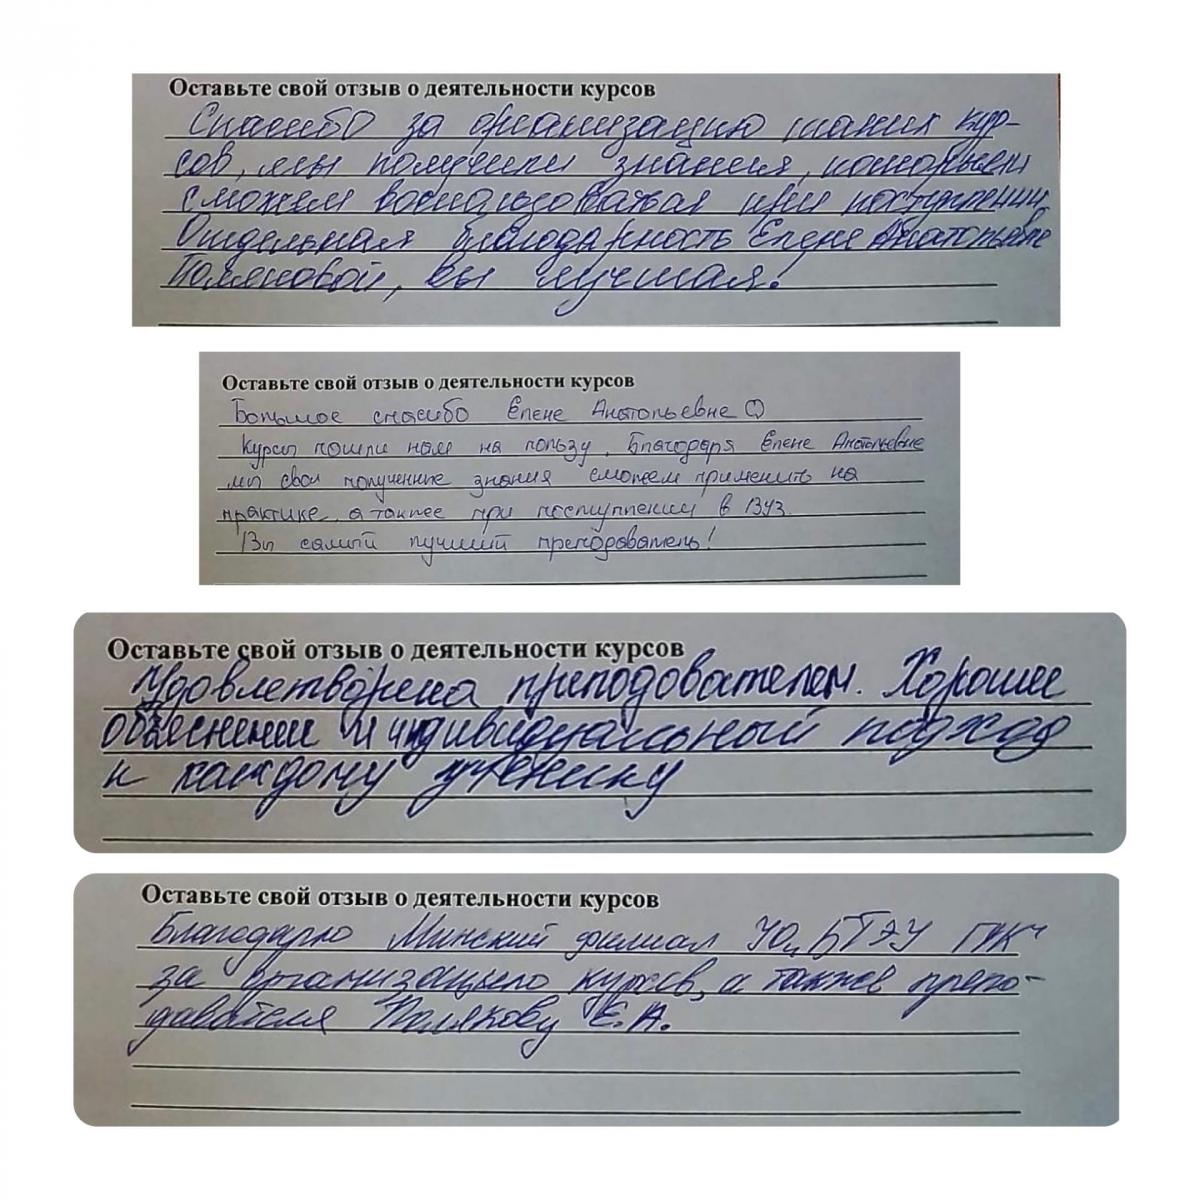 Оставьте свой отзыв о деятельности курсов
Спасибо за организацию таких кур-
сов, мы получили знания, которыми
сможем воспользоваться при поступлении.
Отдельная благодарность Елене Анатольевне
Поляковой, вы лучшая!
Оставьте свой отзыв о деятельности курсов
Большое спасибо Елене Анатольевне ♡
Курсы пошли нам на пользу. Благодаря Елене Анатольевне
мы свои полученные знания сможем применить на
практике, а также при поступлении в ВУЗ.
Вы самый лучший преподователь!
Оставьте свой отзыв о деятельности курсов
Удовлетворена преподователем. Хорошее
объяснение и индивидуальный подход
к каждому ученику
Оставьте свой отзыв о деятельности курсов
Благодарю Минский филиал УО "БТЭУ ПК"
за организацыю курсов, а также препо-
давателя Полякову Е.А.